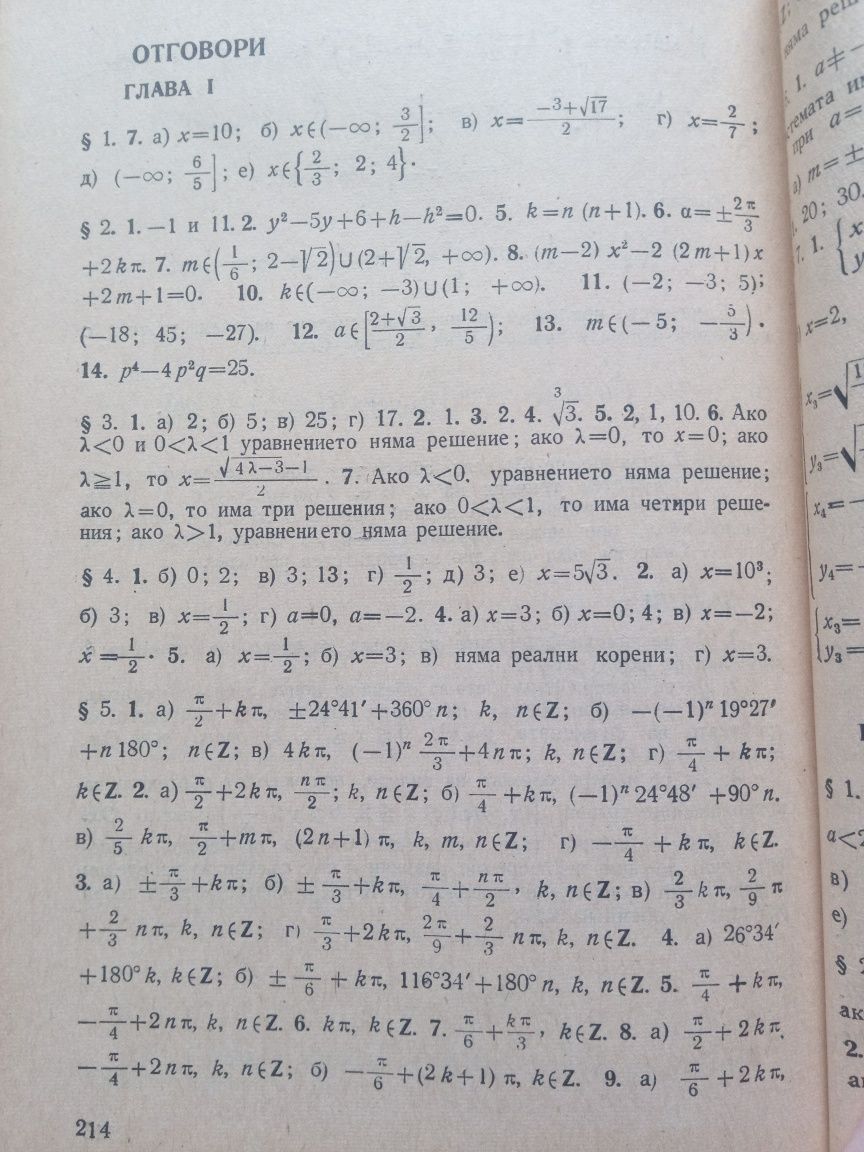 ОТГОВОРИ
ГЛАВА I
§ 1. 7. а) x=10; б) x∈(−∞; 3/2]; в) x=(−3+√17)/2; г) x=2/7;
д) (−∞; 6/5]; е) x∈{2/3; 2; 4}.
§ 2. 1. −1 и 11. 2. y²−5y+6+h−h²=0. 5. k=n (n+1). 6. α=±2π/3
+2kπ. 7. m∈(1/6; 2−√2)∪(2+√2, +∞). 8. (m−2) x²−2 (2m+1)x
+2m+1=0. 10. k∈(−∞; −3)∪(1; +∞). 11. (−2; −3; 5);
(−18; 45; −27). 12. a∈[(2+√3)/2, 12/5); 13. m∈(−5; −5/3).
14. p⁴−4p²q=25.
§ 3. 1. а) 2; б) 5; в) 25; г) 17. 2. 1. 3. 2. 4. ∛3. 5. 2, 1, 10. 6. Ако
λ<0 и 0<λ<1 уравнението няма решение; ако λ=0, то x=0; ако
λ≧1, то x=(√4λ−3−1)/2. 7. Ако λ<0. уравнението няма решение;
ако λ=0, то има три решения; ако 0<λ<1, то има четири реше-
ния; ако λ>1, уравнението няма решение.
§ 4. 1. б) 0; 2; в) 3; 13; г) 1/2; д) 3; е) x=5√3. 2. а) x=10³;
б) 3; в) x=1/2; г) a=0, a=−2. 4. а) x=3; б) x=0; 4; в) x=−2;
x=1/2. 5. а) x=1/2; б) x=3; в) няма реални корени; г) x=3.
§ 5. 1. а) π/2+kπ, ±24°41′+360°n; k, n∈Z; б) −(−1)ⁿ 19°27′
+n 180°; n∈Z; в) 4kπ, (−1)ⁿ 2π/3+4nπ; k, n∈Z; г) π/4+kπ;
k∈Z. 2. а) π/2+2kπ, nπ/2; k, n∈Z; б) π/4+kπ, (−1)ⁿ 24°48′ +90°n.
в) 2/5 kπ, π/2+mπ, (2n+1) π, k, m, n∈Z; г) −π/4+kπ, k∈Z.
3. а) ±π/3+kπ; б) ±π/3+kπ, π/4+nπ/2, k, n∈Z; в) 2/3 kπ, 2/9 π
+2/3 nπ, k, n∈Z; г) π/3+2kπ, 2π/9+2/3 nπ, k, n∈Z. 4. а) 26°34′
+180°k, k∈Z; б) ±π/6+kπ, 116°34′+180°n, k, n∈Z. 5. π/4+kπ,
−π/4+2nπ, k, n∈Z. 6. kπ, k∈Z. 7. π/6+kπ/3, k∈Z. 8. а) π/2+2kπ.
−π/4+2nπ, k, n∈Z; б) −π/6+(2k+1) π, k∈Z. 9. а) π/6+2kπ,
214